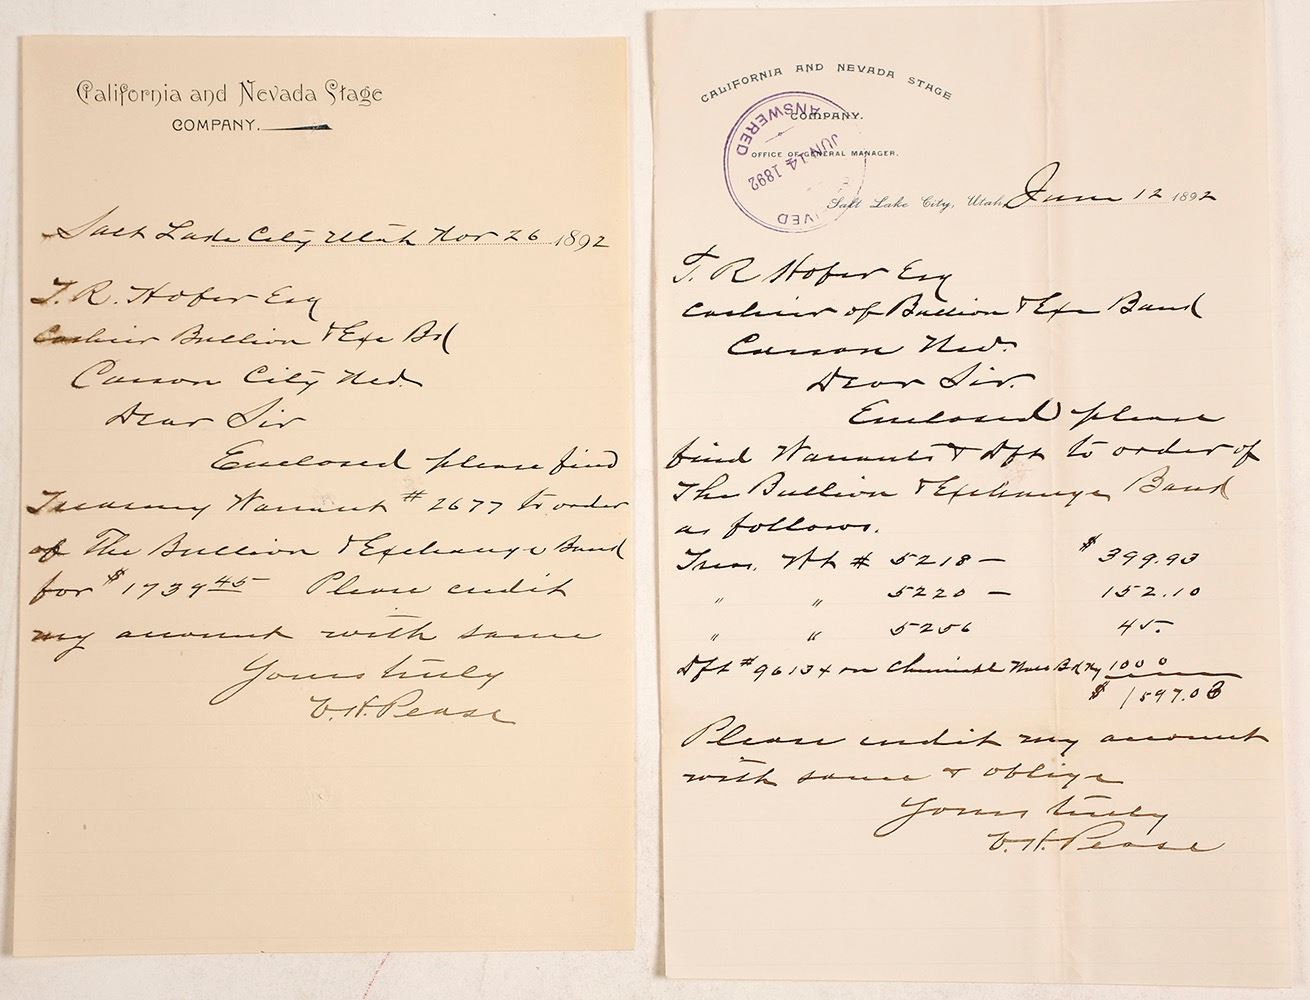 California and Nevada Stage
COMPANY.
Salt Lake City Utah Nov 26 1892
T. R. Hofer Esq
Cashier Bullion & Exc Bk
Carson City Nev.
Dear Sir
Enclosed please find
Treasury Warrant # 2677 to order
of The Bullion & Exchange Bank
for $1739 45 Please credit
my account with same
Yours truly
V. H. Pease
CALIFORNIA AND NEVADA STAGE
COMPANY.
OFFICE OF GENERAL MANAGER.
ANSWERED
JUN 14 1892
IVED
Salt Lake City, Utah, June 12 1892
T. R Hofer Esq
Cashier of Bullion & Exc Bank
Carson Nev.
Dear Sir.
Enclosed please
find Warrants & Dft to order of
The Bullion & Exchange Bank
as follows.
Treas. Wt # 5218 — $399.93
" " 5220 — 152.10
" " 5256 45.
Dft # 96134 on Chemical Natl Bk NY 1000
$1597.03
Please credit my account
with same & oblige
Yours truly
V. H. Pease